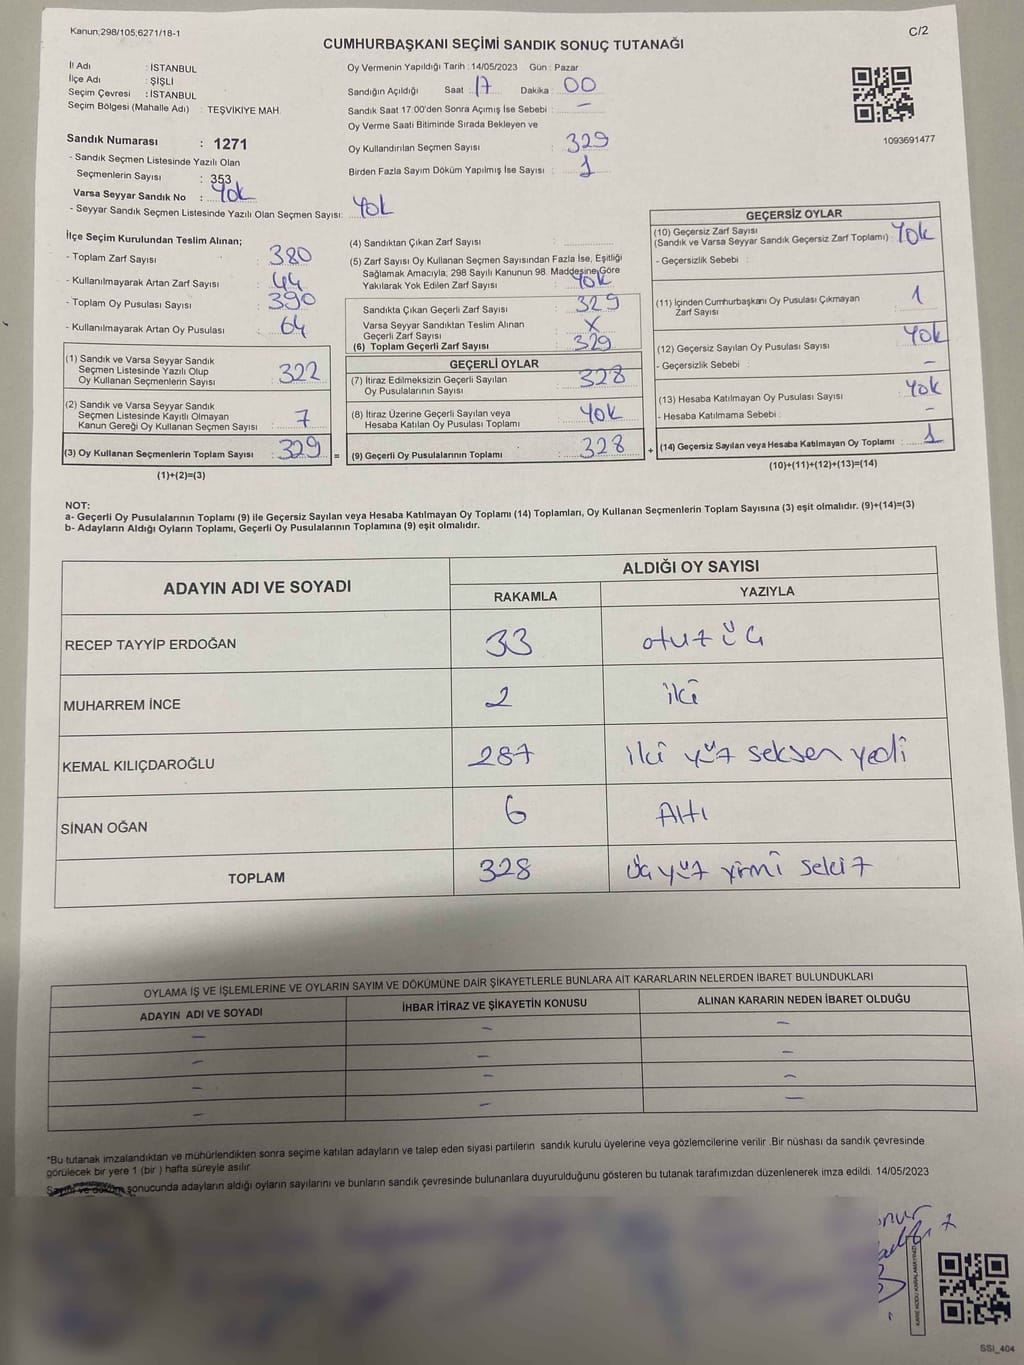 Kanun;298/105;6271/18-1
C/2
CUMHURBAŞKANI SEÇİMİ SANDIK SONUÇ TUTANAĞI
İl Adı : İSTANBUL
İlçe Adı : ŞİŞLİ
Seçim Çevresi : İSTANBUL
Seçim Bölgesi (Mahalle Adı) : TEŞVİKİYE MAH.
Sandık Numarası : 1271
- Sandık Seçmen Listesinde Yazılı Olan
Seçmenlerin Sayısı : 353
Varsa Seyyar Sandık No : Yok
- Seyyar Sandık Seçmen Listesinde Yazılı Olan Seçmen Sayısı: Yok
Oy Vermenin Yapıldığı Tarih : 14/05/2023 Gün : Pazar
Sandığın Açıldığı Saat : 17 Dakika : 00
Sandık Saat 17:00'den Sonra Açımış İse Sebebi : -
Oy Verme Saati Bitiminde Sırada Bekleyen ve
Oy Kullandırılan Seçmen Sayısı : 329
Birden Fazla Sayım Döküm Yapılmış İse Sayısı : 1
1093691477
İlçe Seçim Kurulundan Teslim Alınan;
- Toplam Zarf Sayısı : 380
- Kullanılmayarak Artan Zarf Sayısı : 44
- Toplam Oy Pusulası Sayısı : 390
- Kullanılmayarak Artan Oy Pusulası : 64
(1) Sandık ve Varsa Seyyar Sandık
Seçmen Listesinde Yazılı Olup
Oy Kullanan Seçmenlerin Sayısı : 322
(2) Sandık ve Varsa Seyyar Sandık
Seçmen Listesinde Kayıtlı Olmayan
Kanun Gereği Oy Kullanan Seçmen Sayısı : 7
(3) Oy Kullanan Seçmenlerin Toplam Sayısı : 329 =
(1)+(2)=(3)
(4) Sandıktan Çıkan Zarf Sayısı :
(5) Zarf Sayısı Oy Kullanan Seçmen Sayısından Fazla İse, Eşitliği
Sağlamak Amacıyla, 298 Sayılı Kanunun 98. Maddesine Göre
Yakılarak Yok Edilen Zarf Sayısı : Yok
Sandıkta Çıkan Geçerli Zarf Sayısı : 329
Varsa Seyyar Sandıktan Teslim Alınan
Geçerli Zarf Sayısı : X
(6) Toplam Geçerli Zarf Sayısı : 329
GEÇERLİ OYLAR
(7) İtiraz Edilmeksizin Geçerli Sayılan
Oy Pusulalarının Sayısı : 328
(8) İtiraz Üzerine Geçerli Sayılan veya
Hesaba Katılan Oy Pusulası Toplamı : Yok
(9) Geçerli Oy Pusulalarının Toplamı : 328 +
GEÇERSİZ OYLAR
(10) Geçersiz Zarf Sayısı
(Sandık ve Varsa Seyyar Sandık Geçersiz Zarf Toplamı) : Yok
- Geçersizlik Sebebi :
(11) İçinden Cumhurbaşkanı Oy Pusulası Çıkmayan
Zarf Sayısı : 1
(12) Geçersiz Sayılan Oy Pusulası Sayısı : Yok
- Geçersizlik Sebebi : -
(13) Hesaba Katılmayan Oy Pusulası Sayısı : Yok
- Hesaba Katılmama Sebebi : -
(14) Geçersiz Sayılan veya Hesaba Katılmayan Oy Toplamı : 1
(10)+(11)+(12)+(13)=(14)
NOT:
a- Geçerli Oy Pusulalarının Toplamı (9) ile Geçersiz Sayılan veya Hesaba Katılmayan Oy Toplamı (14) Toplamları, Oy Kullanan Seçmenlerin Toplam Sayısına (3) eşit olmalıdır. (9)+(14)=(3)
b- Adayların Aldığı Oyların Toplamı, Geçerli Oy Pusulalarının Toplamına (9) eşit olmalıdır.
ADAYIN ADI VE SOYADI
ALDIĞI OY SAYISI
RAKAMLA YAZIYLA
RECEP TAYYİP ERDOĞAN 33 otuz üç
MUHARREM İNCE 2 iki
KEMAL KILIÇDAROĞLU 287 iki yüz seksen yedi
SİNAN OĞAN 6 Altı
TOPLAM 328 üç yüz yirmi sekiz
OYLAMA İŞ VE İŞLEMLERİNE VE OYLARIN SAYIM VE DÖKÜMÜNE DAİR ŞİKAYETLERLE BUNLARA AİT KARARLARIN NELERDEN İBARET BULUNDUKLARI
ADAYIN ADI VE SOYADI İHBAR İTİRAZ VE ŞİKAYETİN KONUSU ALINAN KARARIN NEDEN İBARET OLDUĞU
- - -
- - -
- - -
- - -
*Bu tutanak imzalandıktan ve mühürlendikten sonra seçime katılan adayların ve talep eden siyasi partilerin sandık kurulu üyelerine veya gözlemcilerine verilir .Bir nüshası da sandık çevresinde
görülecek bir yere 1 (bir ) hafta süreyle asılır.
Sayım ve döküm sonucunda adayların aldığı oyların sayılarını ve bunların sandık çevresinde bulunanlara duyurulduğunu gösteren bu tutanak tarafımızdan düzenlenerek imza edildi. 14/05/2023
KARE KODU KARALAMAYINIZ
SSI_404